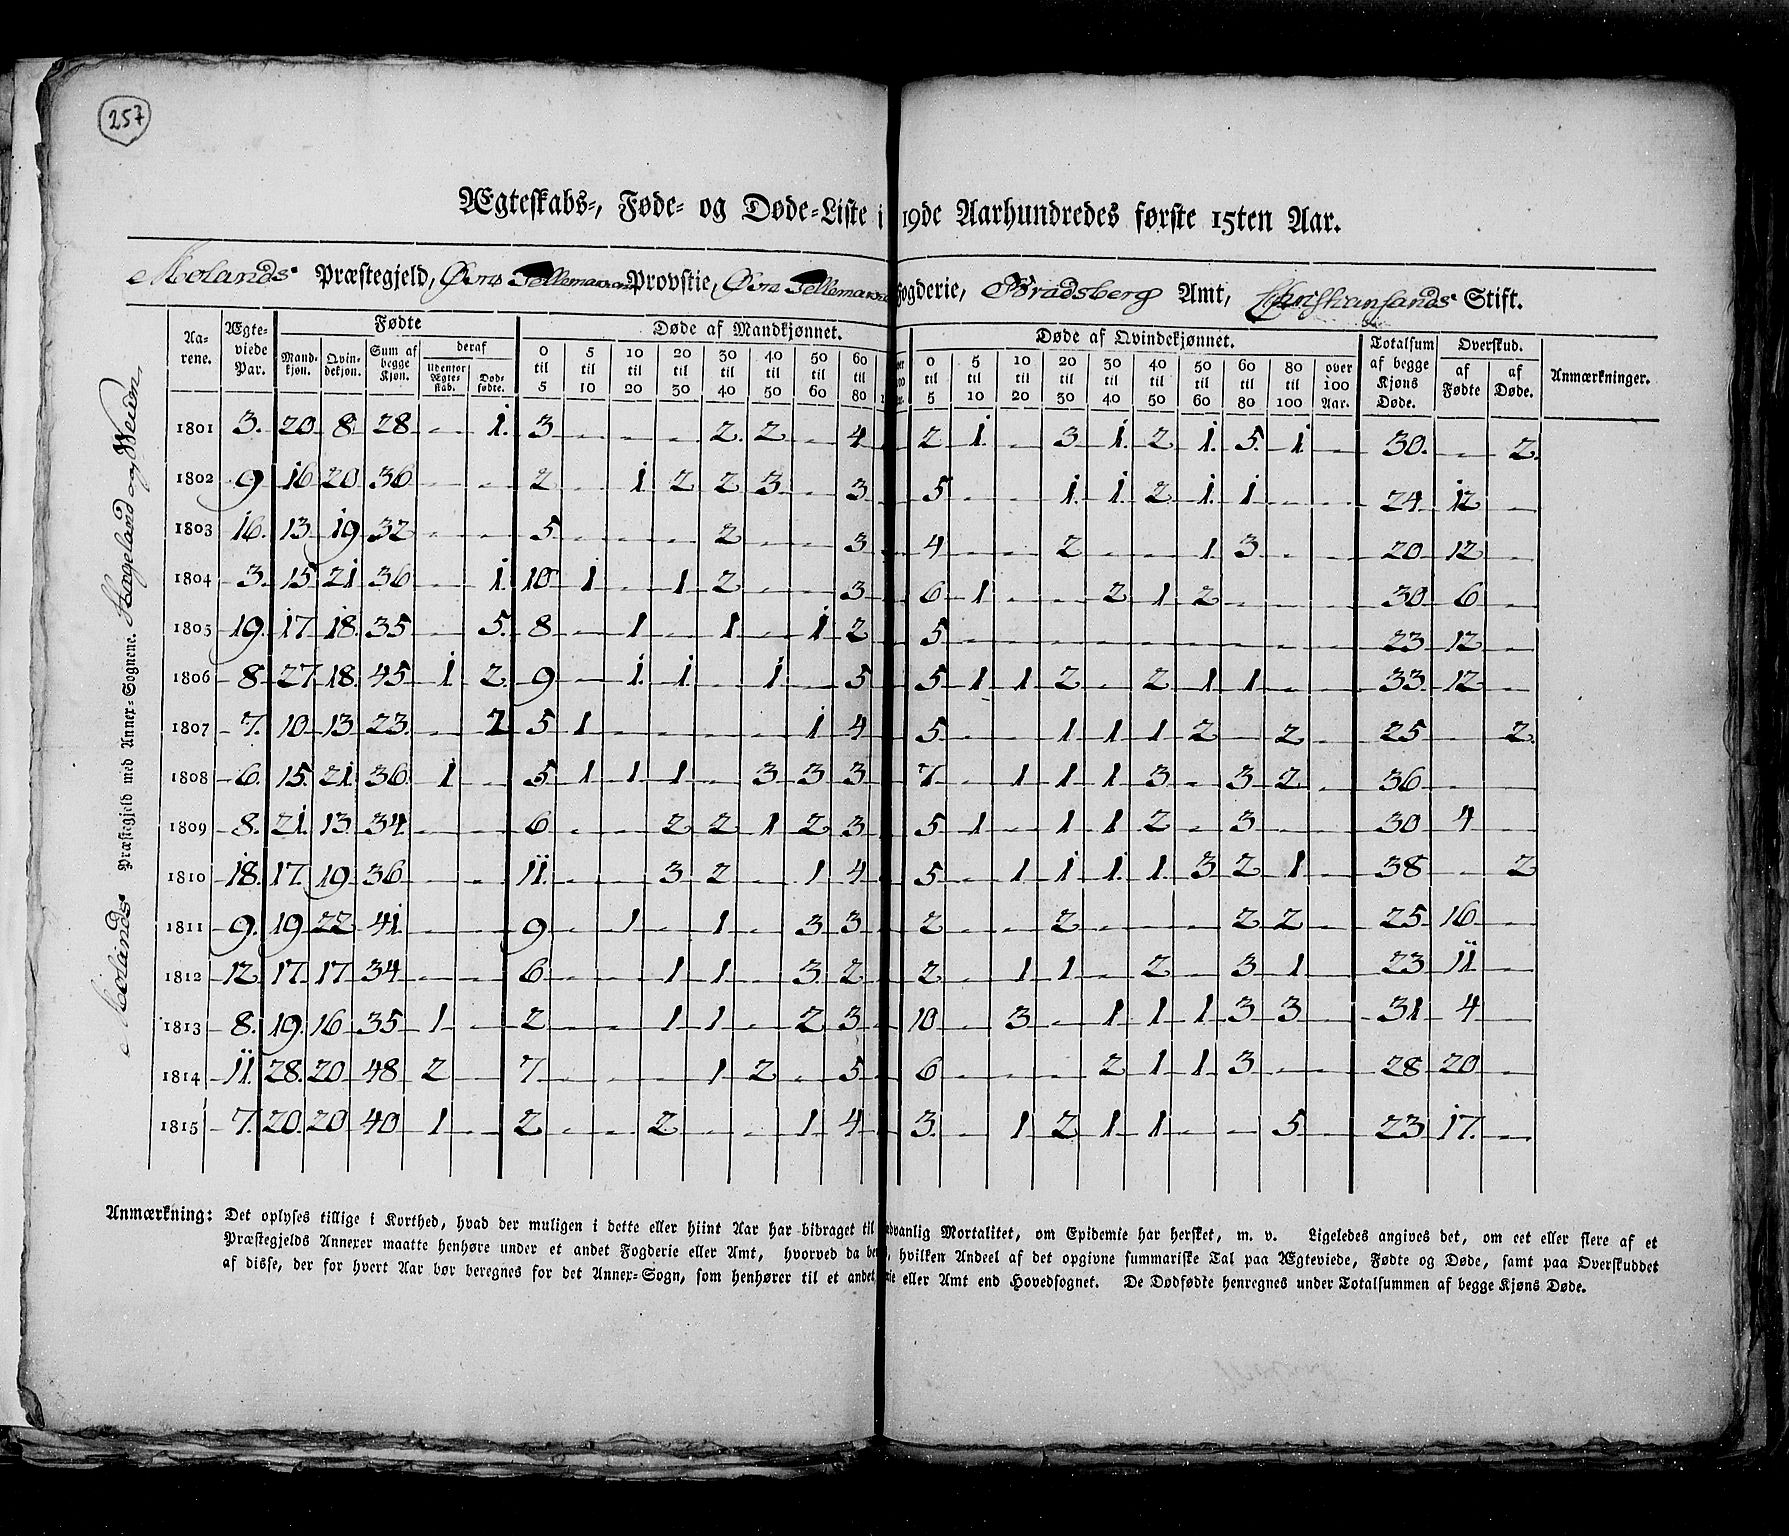 257
Ægteskabs-, Føde- og Døde-Liste i 19de Aarhundredes første 15ten Aar.
Molands Præstegjeld, Øvre Tellemarken Provstie, Øvre Tellemarke Fogderie, Bradsberg Amt, Christiansands Stift.
Molands Præstegjeld med Annex-Sognene. Skageland og Weum.
Aarene. Ægteviede Par. Fødte Døde af Mandkjønnet. Døde af Qvindekjønnet. Totalsum af begge Kjøns Døde. Overskud. Anmærkninger.
Mandkjøn. Qvindekjøn. Sum af begge Kjøn. deraf udenfor Ægteskab. Dødfødte. 0 til 5 5 til 10 10 til 20 20 til 30 30 til 40 40 til 50 50 til 60 60 til 80 0 til 5 5 til 10 10 til 20 20 til 30 30 til 40 40 til 50 50 til 60 60 til 80 80 til 100 over 100 Aar. af Fødte af Døde.
1801 3. 20 8. 28 - 1. 3 - - - 2 2 - 4 2 1. - 3 1. 2 1. 5. 1 - 30. - 2.
1802 9 16 20 36 - - 2 - 1 2 2 3 - 3 5 - - 1. 1 2 1. 1 - - 24 12 -
1803 16. 13 19 32 - - 5 - - - 2 - - 3 4 - - 2 - - 1 3 - - 20 12 -
1804 3. 15 21 36 - 1. 10 1 - 1 2 - - 3 6 1 - - 2 1 2 - - - 30 6 -
1805 19. 17 18. 35 - 5. 8 - 1 - 1 - 1 2 5 - - - - - - - - - 23 12 -
1806 8 27 18. 45 1 2. 9 - 1. 1. - 1 - 5 5 1 1 2 - 2 1 1 - - 33. 12 -
1807 7. 10 13 23. - 2 5 1 - - - - 1 4 5 - - 1 1 1 2 - 2 - 25 - 2.
1808 6. 15. 21. 36 1 - 5 1 1 1 - 3 3 3 7 - 1 1 1 3 - 3 2 - 36 - -
1809 8. 21. 13 34 - - 6 - - 2 2 1 2 3 5 1 - 1 1 2 - 3 - - 30 4 -
1810 18. 17. 19 36 - - 11. - - 3 2 - 1 4 5 - 1 1 1. 1. 3 2 1 - 38 - 2
1811 9. 19 22 41 - - 9 - 1 - 1 - 3 3 2 - - 2 - - - 2 2 - 25 16 -
1812 12. 17. 17 34 - - 6 - - 1 1 - 3 2 2 - 1 1 - 2 - 3 1 - 23 11 -
1813 8. 19. 16 35 1 - 2 - - 1 1 - 2 3 10 - 3 - 1 1 1 3 3 - 31 4 -
1814 11. 28. 20 48 2 - 7 - - - 1 2 - 5 6 - - - 2 1 1 3 - - 28 20 -
1815 7. 20. 20 40 1 - 2 - - 2 - - 1 4 3. - 1 2 1 1 - - 5 - 23 17. -
Anmærkning: Det oplyses tillige i Korthed, hvad der muligen i dette eller hiint Aar har bidraget til Mortalitet, om Epidemie har hersket, m. v. Ligeledes angives det, om eet eller flere af et
Præstegjelds Annexer maatte henhøre under et andet Fogderie eller Amt, hvorved da hvilken Andeel af det opgivne summariske Tal paa Ægteviede, Fødte og Døde, samt paa Overskuddet
af disse, der for hvert Aar bør beregnes for det Annex-Sogn, som henhører til et andet eller Amt end Hovedsognet. De Dødfødte henregnes under Totalsummen af begge Kjøns Døde.